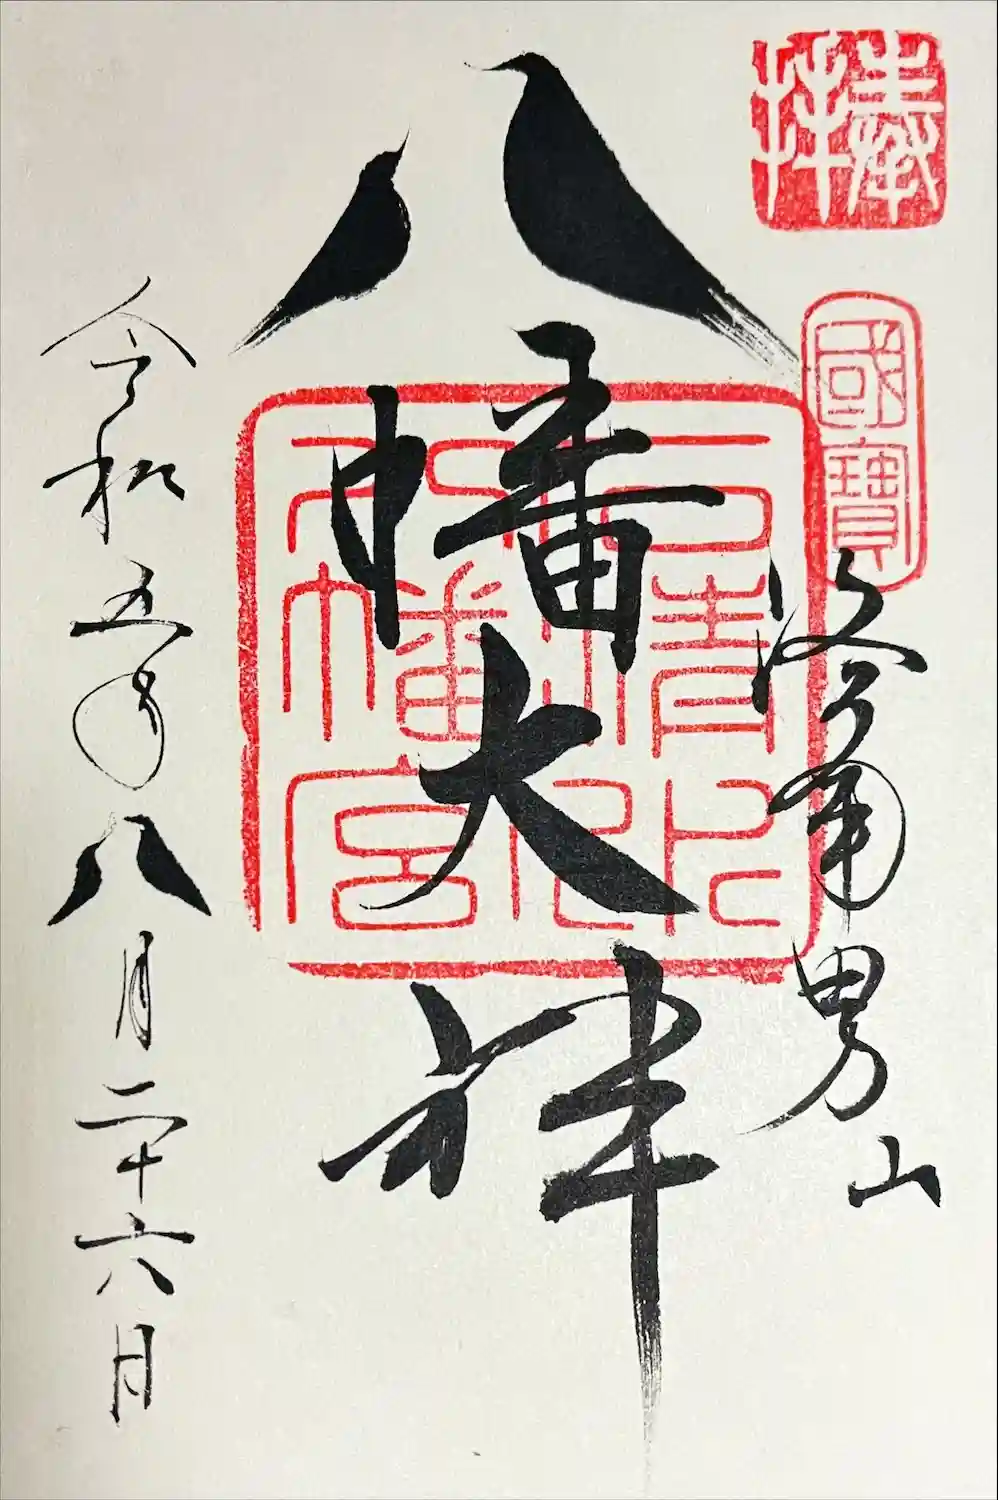 奉拝
國寶
洛南男山
八幡大神
石清水
八幡宮
令和五年八月二十六日